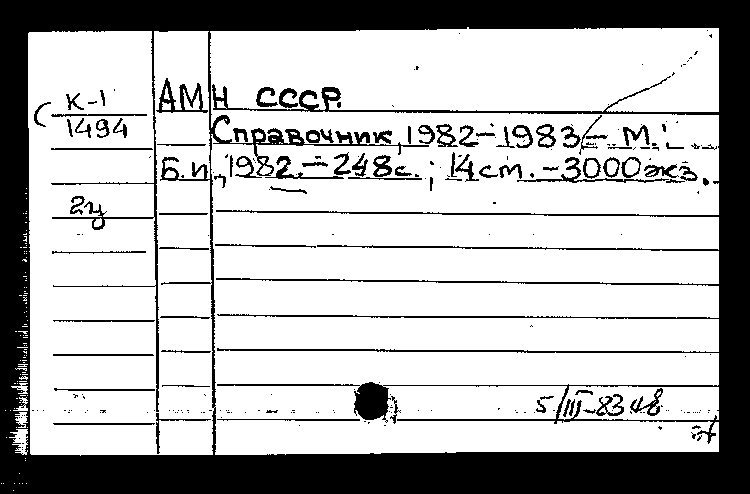 К-1
1494
2ц
АМН СССР.
Справочник, 1982-1983. - М.:
Б.и., 1982. - 248с.; 14см. - 3000экз.
5/III-83